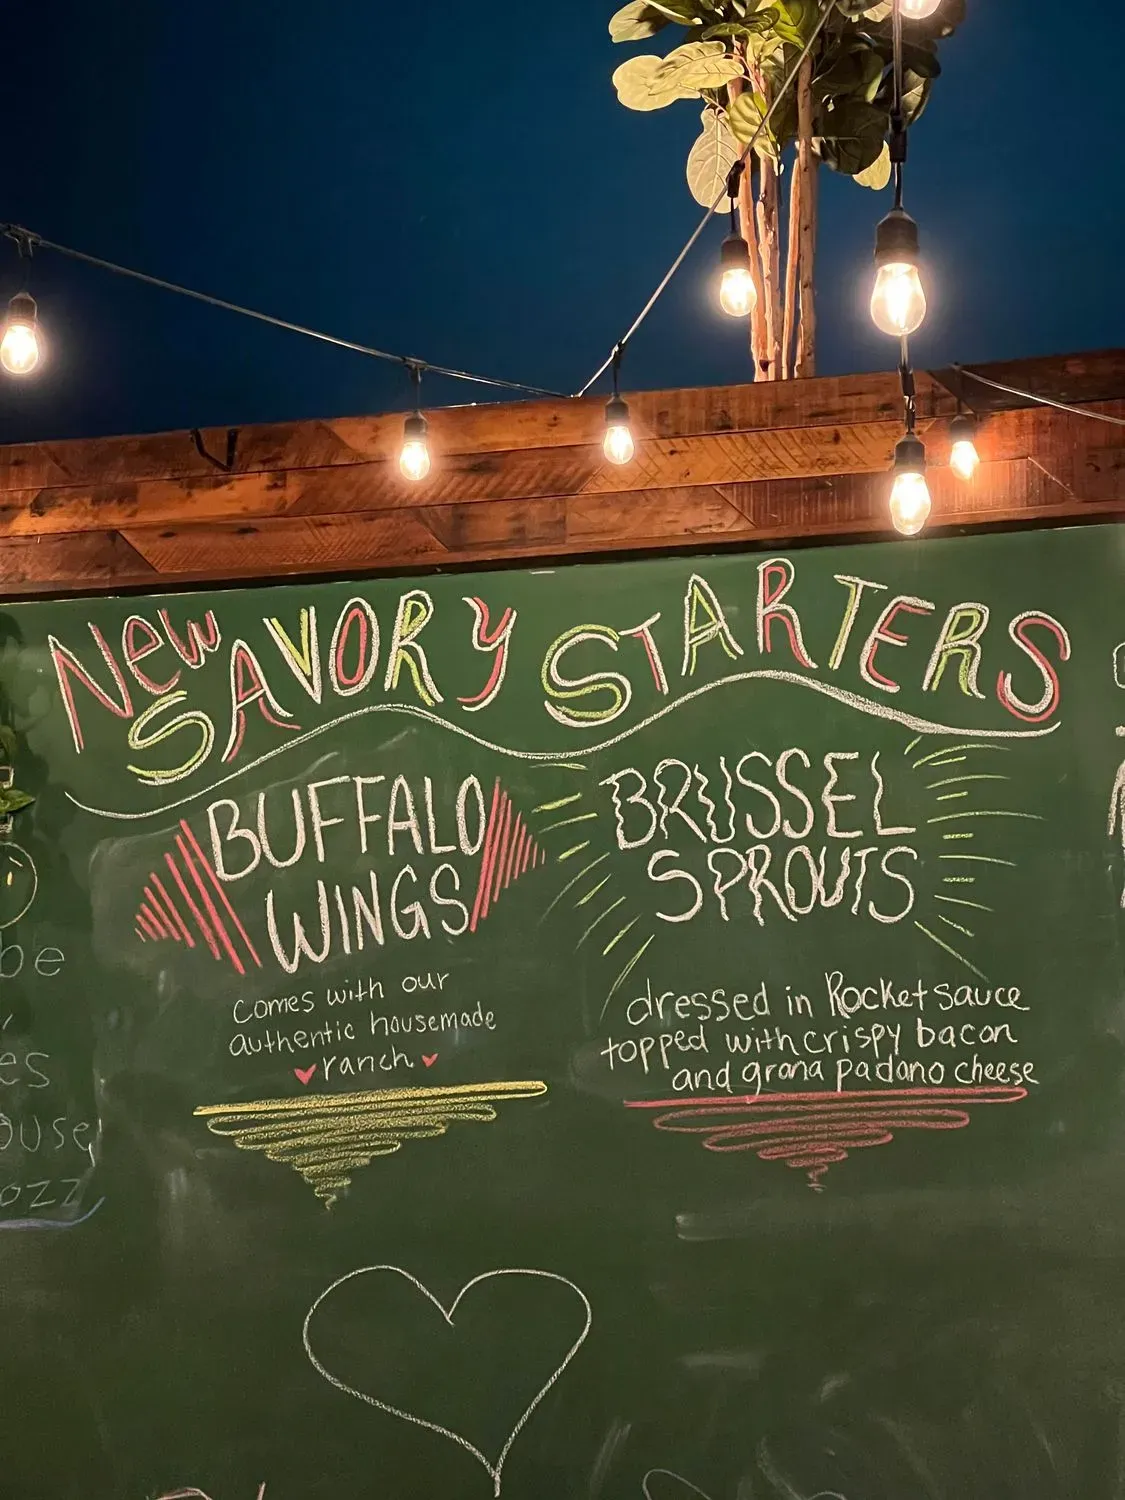 New
SAVORY STARTERS
BUFFALO
WINGS
comes with our
authentic housemade
ranch
BRUSSEL
SPROUTS
dressed in Rocket sauce
topped with crispy bacon
and grana padano cheese
be